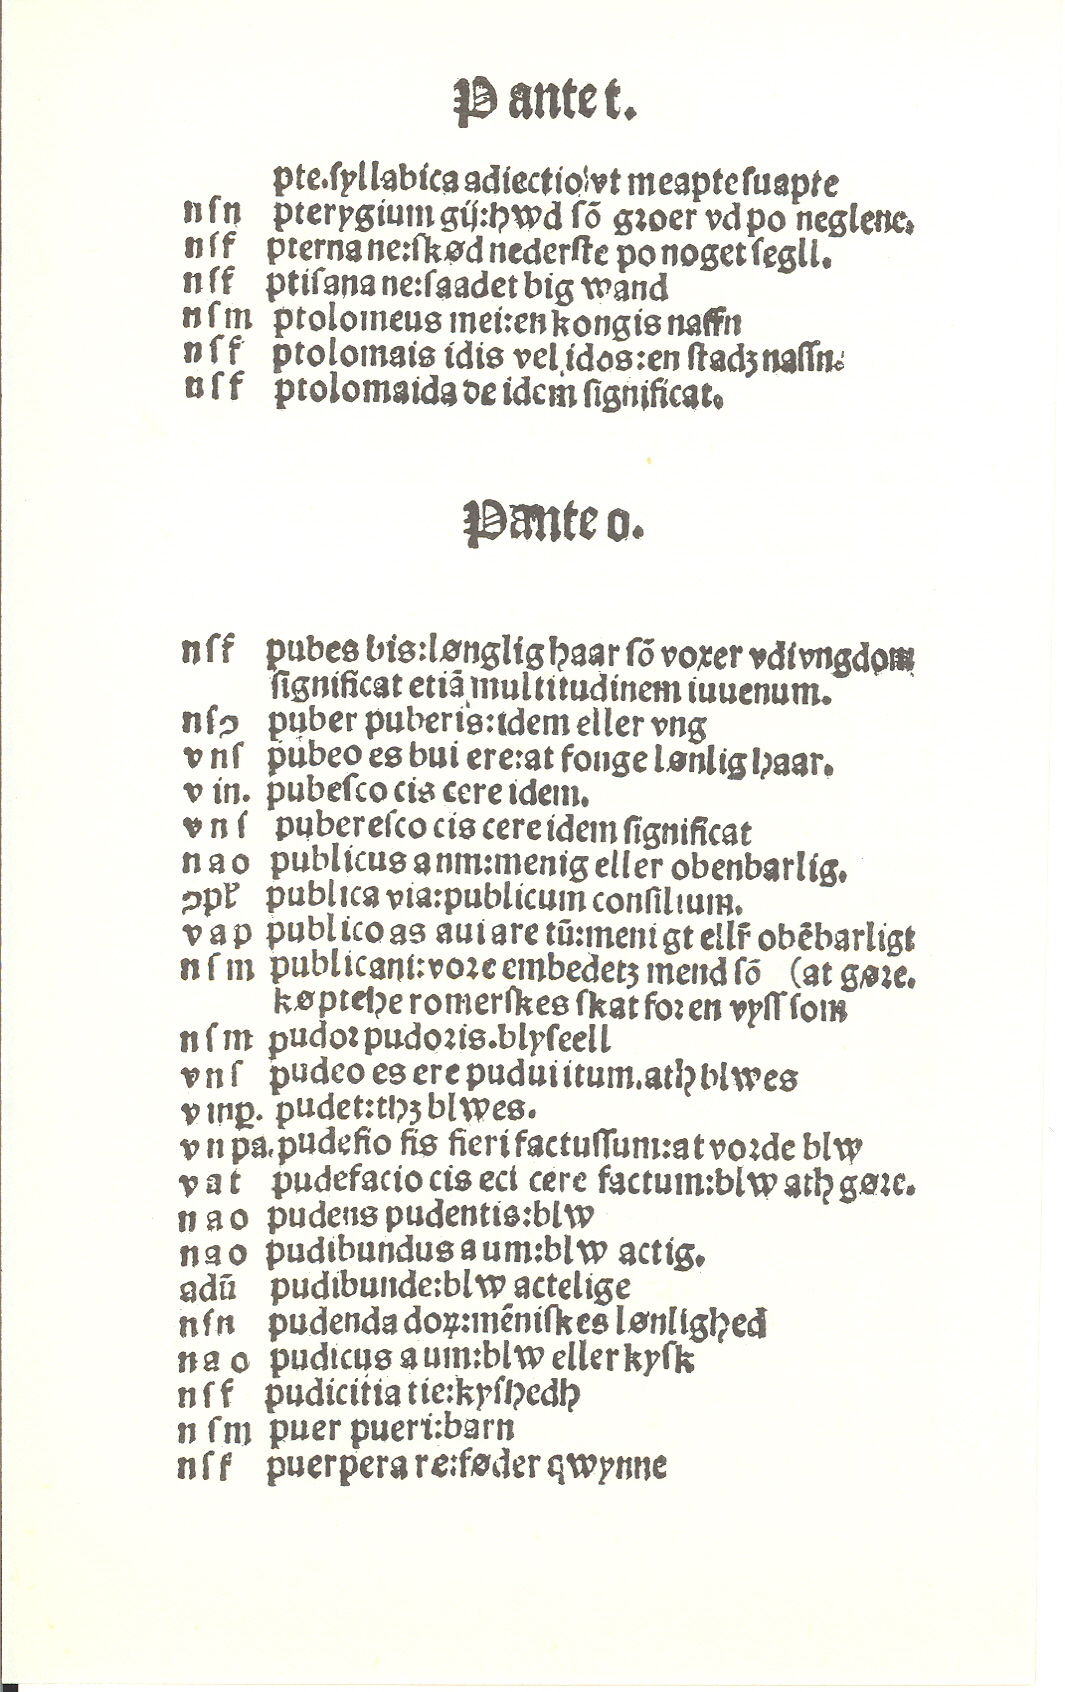 P ante t.
pte.ſyllabica adiectio:vt meapte ſuapte
n ſ n pterygium gij:hwd ſō gꝛoer vd po neglene.
n ſ f pterna ne:ſkød nederſte po noget ſegll.
n ſ f ptiſana ne:ſaadet big wand
n ſ m ptolomeus mei:en kongis naffn
n ſ f ptolomais idis vel idos:en ſtadꝫ naffn.
n ſ f ptolomaida de idem ſignificat.
P ante o.
n ſ f pubes bis:lønglig haar ſō voxer vdi vngdom
ſignificat etiā multitudinem iuuenum.
n ſ ↄ puber puberis:idem eller vng
v n ſ pubeo es bui ere:at fonge lønlig haar.
v in. pubeſco cis cere idem.
v n ſ pubereſco cis cere idem ſignificat
n a o publicus a nm:menig eller obenbarlig.
ↄpꝉ publica via:publicum conſilium.
v a p publico as aui are tū:menigt ellr̄ obēbarligt
n ſ m publicani:voꝛe embedetꝫ mend ſō (at gøꝛe.
køpte he romerſkes ſkat foꝛ en vyſſ ſom
n ſ m pudoꝛ pudoꝛis.blyſeell
v n ſ pudeo es ere pudui itum.ath blwes
v inp̱. pudet:thꝫ blwes.
v n pa. pudefio fis fieri factuſſum:at voꝛde blw
v a t pudefacio cis eci cere factum:blw ath gøꝛe.
n a o pudens pudentis:blw
n a o pudibundus a um:blw actig.
adū pudibunde:blw actelige
n ſ n pudenda doꝝ:mēniſkes lønlighed
n a o pudicus a um:blw eller kyſk
n ſ f pudicitia tie:kyſhedh
n ſ m puer pueri:barn
n ſ f puerpera re:føder qwynne